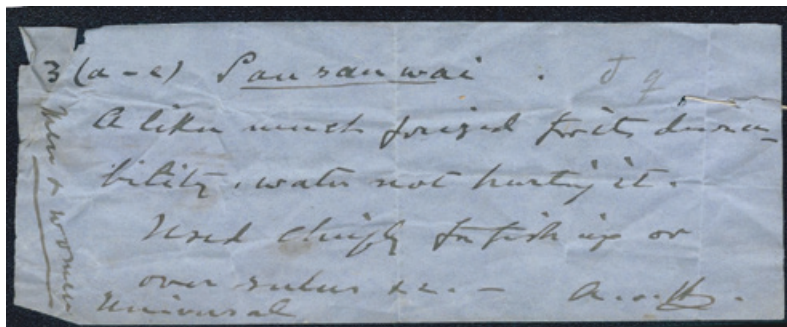 3 (a-e) Sausauwai . J q
A liku much prized for its dura-
bility, water not hurting it.
Used chiefly for fishing or
over sulus &c. —
Universal
Men & women